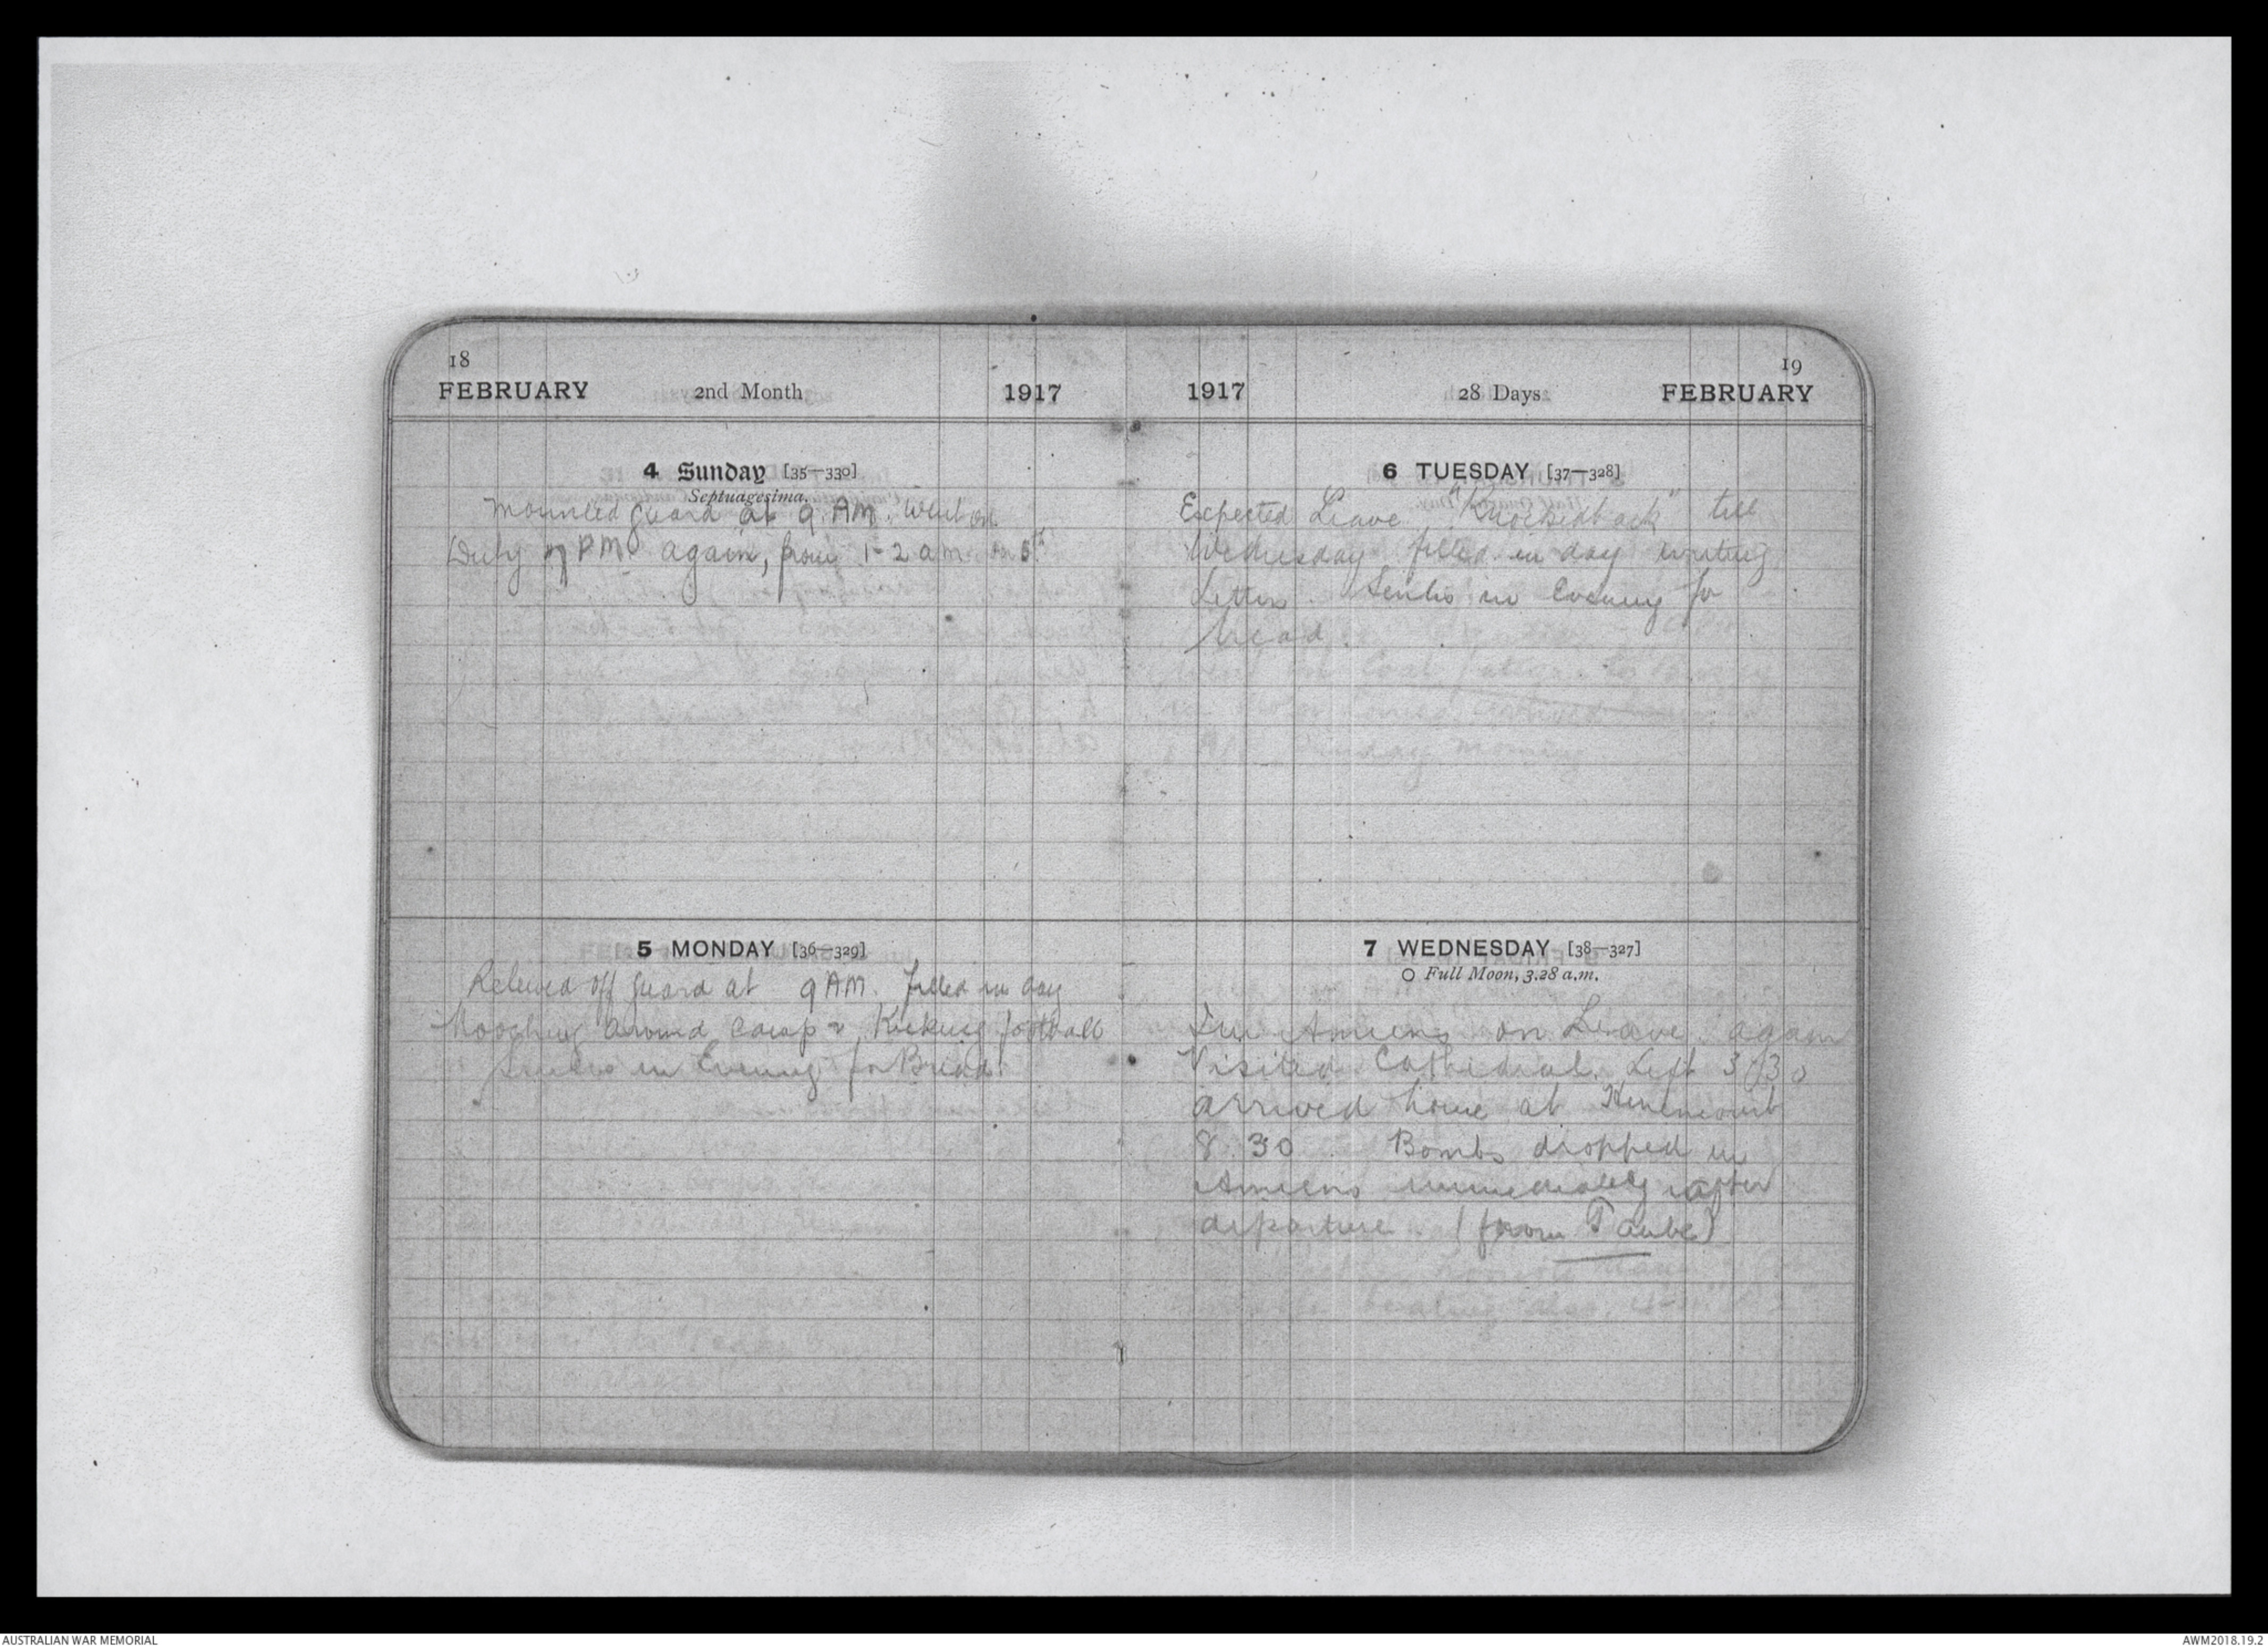 18
FEBRUARY 2nd Month 1917
4 Sunday [35—330]
Septuagesima.
Mounted guard at 9. AM. Went on
Duty 7 PM again, from 1-2 am on 5th
5 MONDAY [36—329]
Relieved off guard at 9 AM. filled in day
Mooching around Camp & Kicking football
in Evening for Bread
19
1917 28 Days FEBRUARY
6 TUESDAY [37—328]
Expected Leave "Knockedback" till
Wednesday filled in day writing
Letters. in Evening for
bread.
7 WEDNESDAY [38—327]
O Full Moon, 3.28 a.m.
In Amiens on Leave again
Visited Cathedral. Left 3/30
arrived home at Henencourt
8.30 Bombs dropped in
Amiens immediately after
departure. (from Taube)
AUSTRALIAN WAR MEMORIAL
AWM2018.19.2